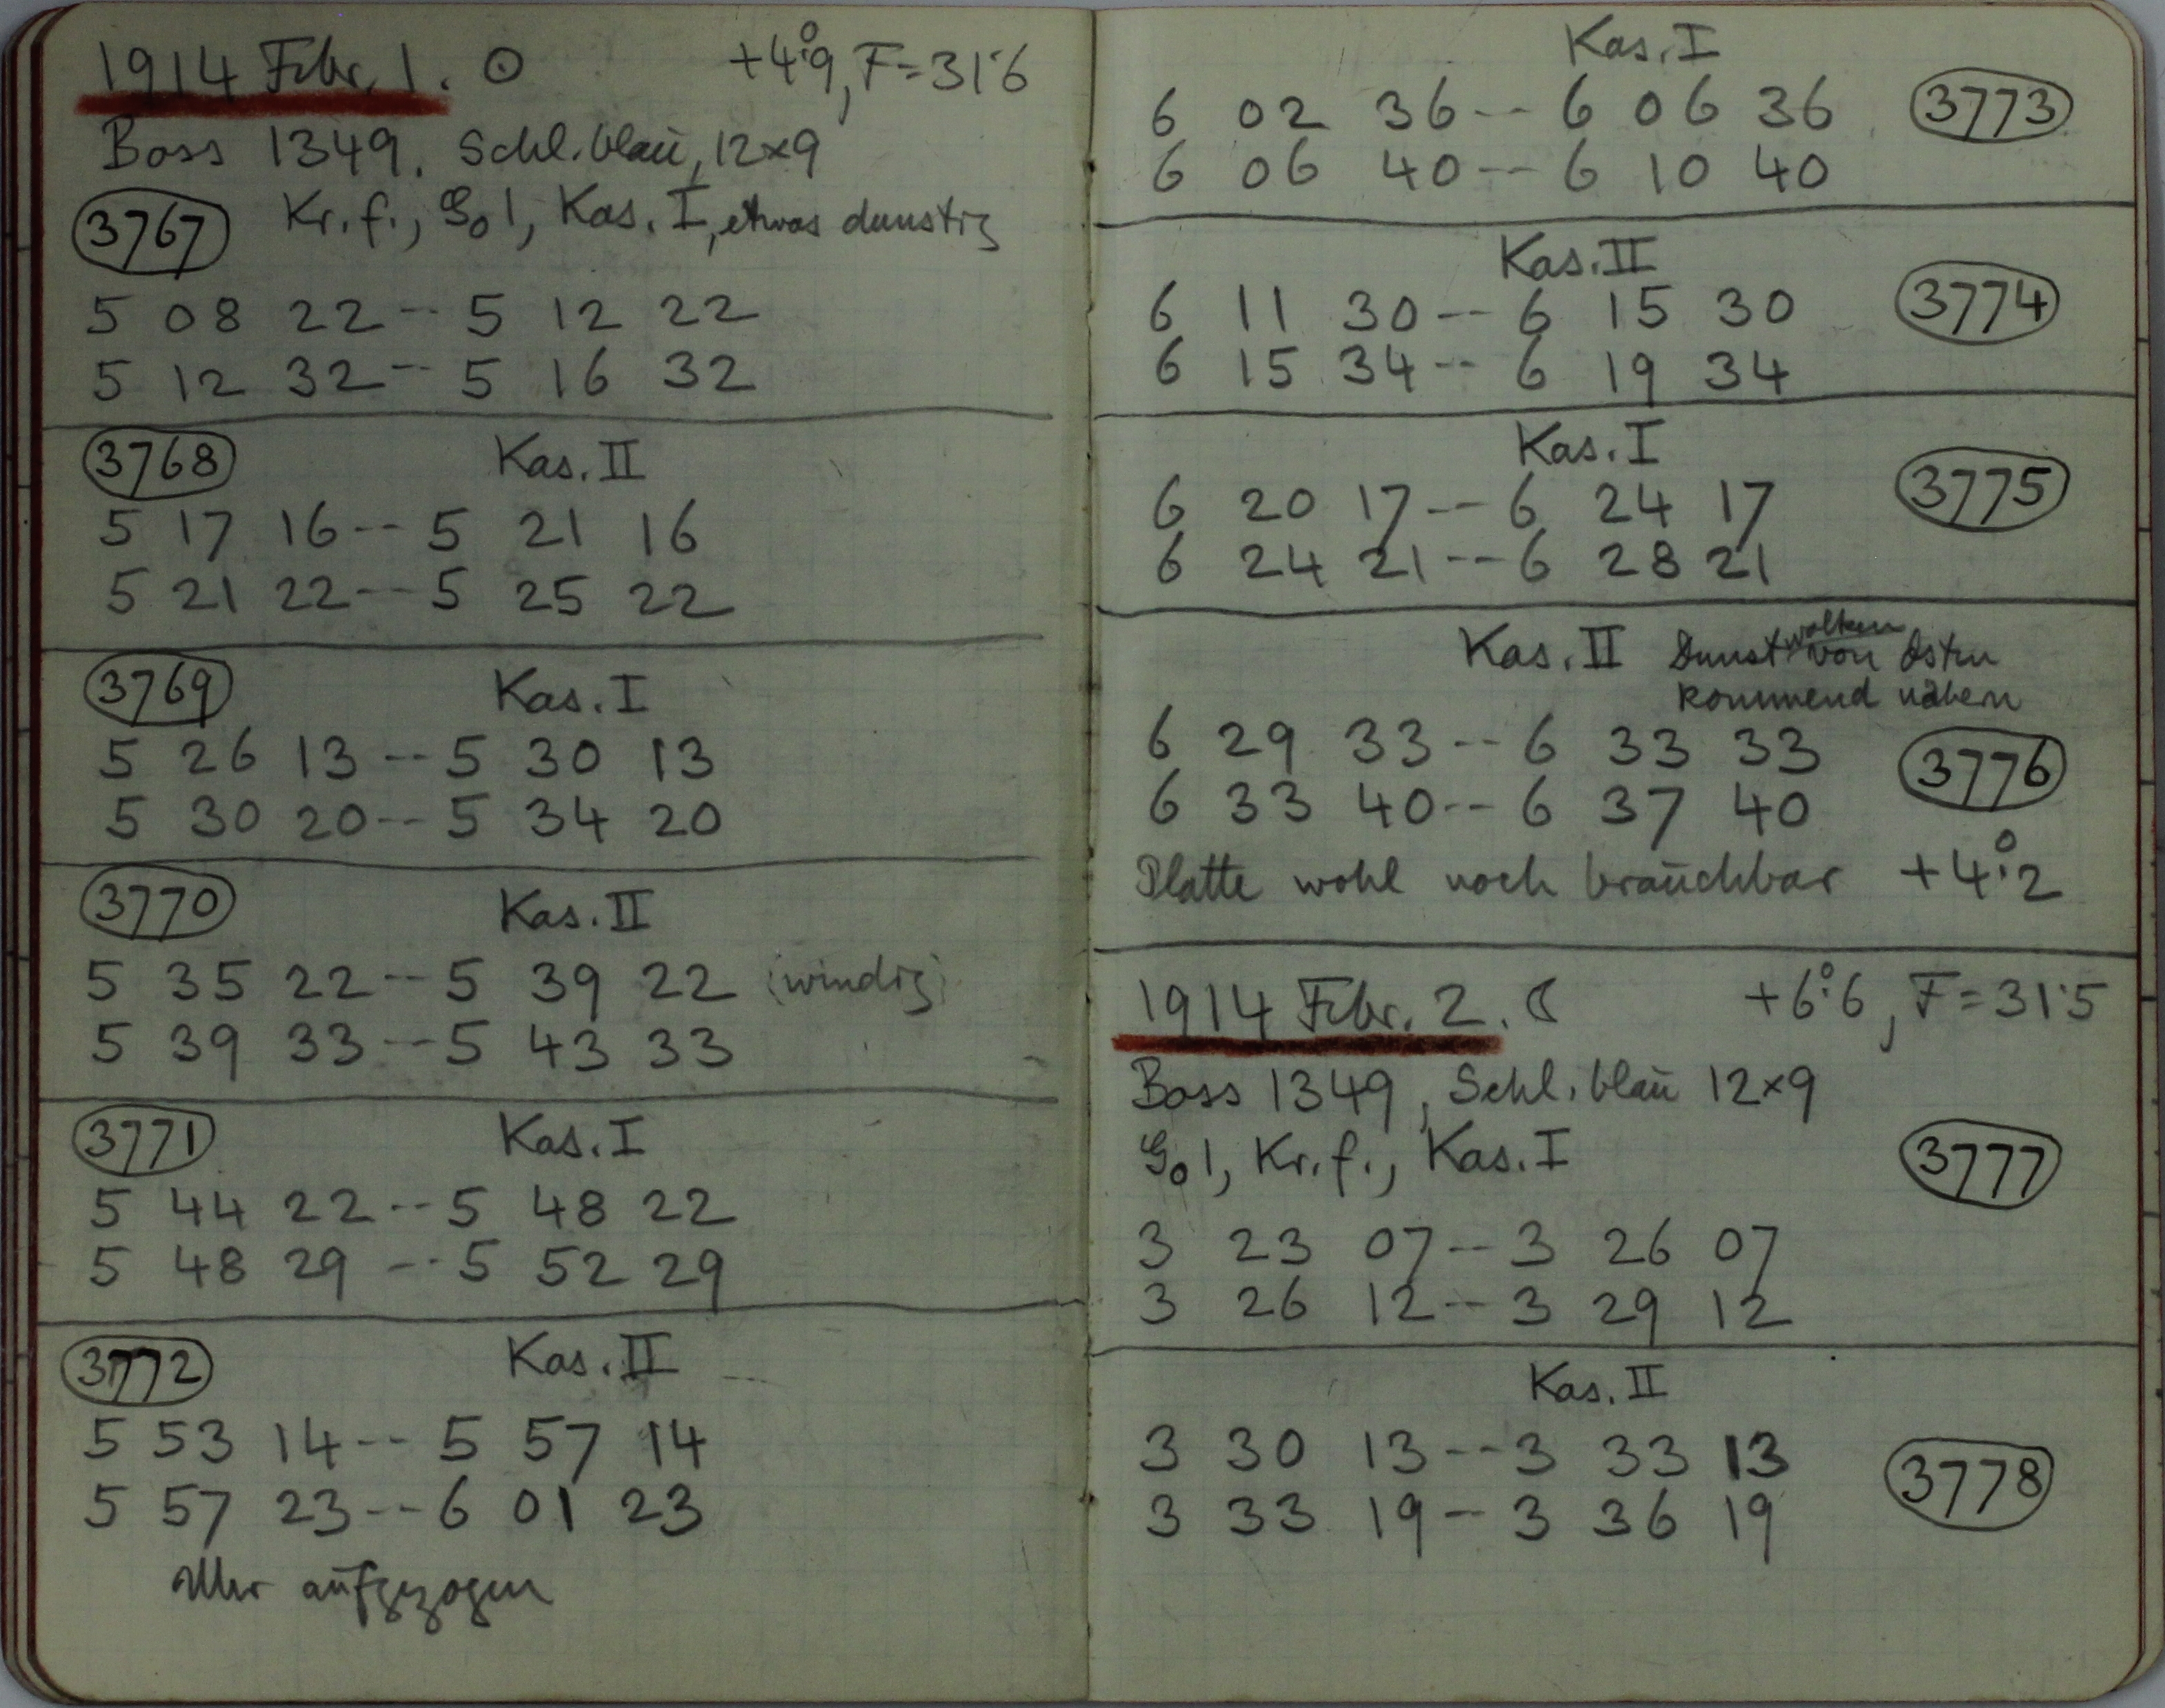 1914 Febr. 1. ☉ +4°.9, F=31.6
Boss 1349. Schl. blau, 12×9
3767 Kr. f., G₀1, Kas. I, etwas dunstig
5 08 22 -- 5 12 22
5 12 32 -- 5 16 32
3768 Kas. II
5 17 16 -- 5 21 16
5 21 22 -- 5 25 22
3769 Kas. I
5 26 13 -- 5 30 13
5 30 20 -- 5 34 20
3770 Kas. II
5 35 22 -- 5 39 22 (windig)
5 39 33 -- 5 43 33
3771 Kas. I
5 44 22 -- 5 48 22
5 48 29 -- 5 52 29
3772 Kas. II
5 53 14 -- 5 57 14
5 57 23 -- 6 01 23
Uhr aufgezogen
Kas. I
6 02 36 -- 6 06 36 3773
6 06 40 -- 6 10 40
Kas. II
6 11 30 -- 6 15 30 3774
6 15 34 -- 6 19 34
Kas. I
6 20 17 -- 6 24 17 3775
6 24 21 -- 6 28 21
Kas. II Dunstwolken von Osten
kommend nähern
6 29 33 -- 6 33 33 3776
6 33 40 -- 6 37 40
Platte wohl noch brauchbar +4°.2
1914 Febr. 2. ☾ +6°.6, F=31.5
Boss 1349, Schl. blau 12×9
G₀1, Kr. f., Kas. I 3777
3 23 07 -- 3 26 07
3 26 12 -- 3 29 12
Kas. II
3 30 13 -- 3 33 13 3778
3 33 19 -- 3 36 19